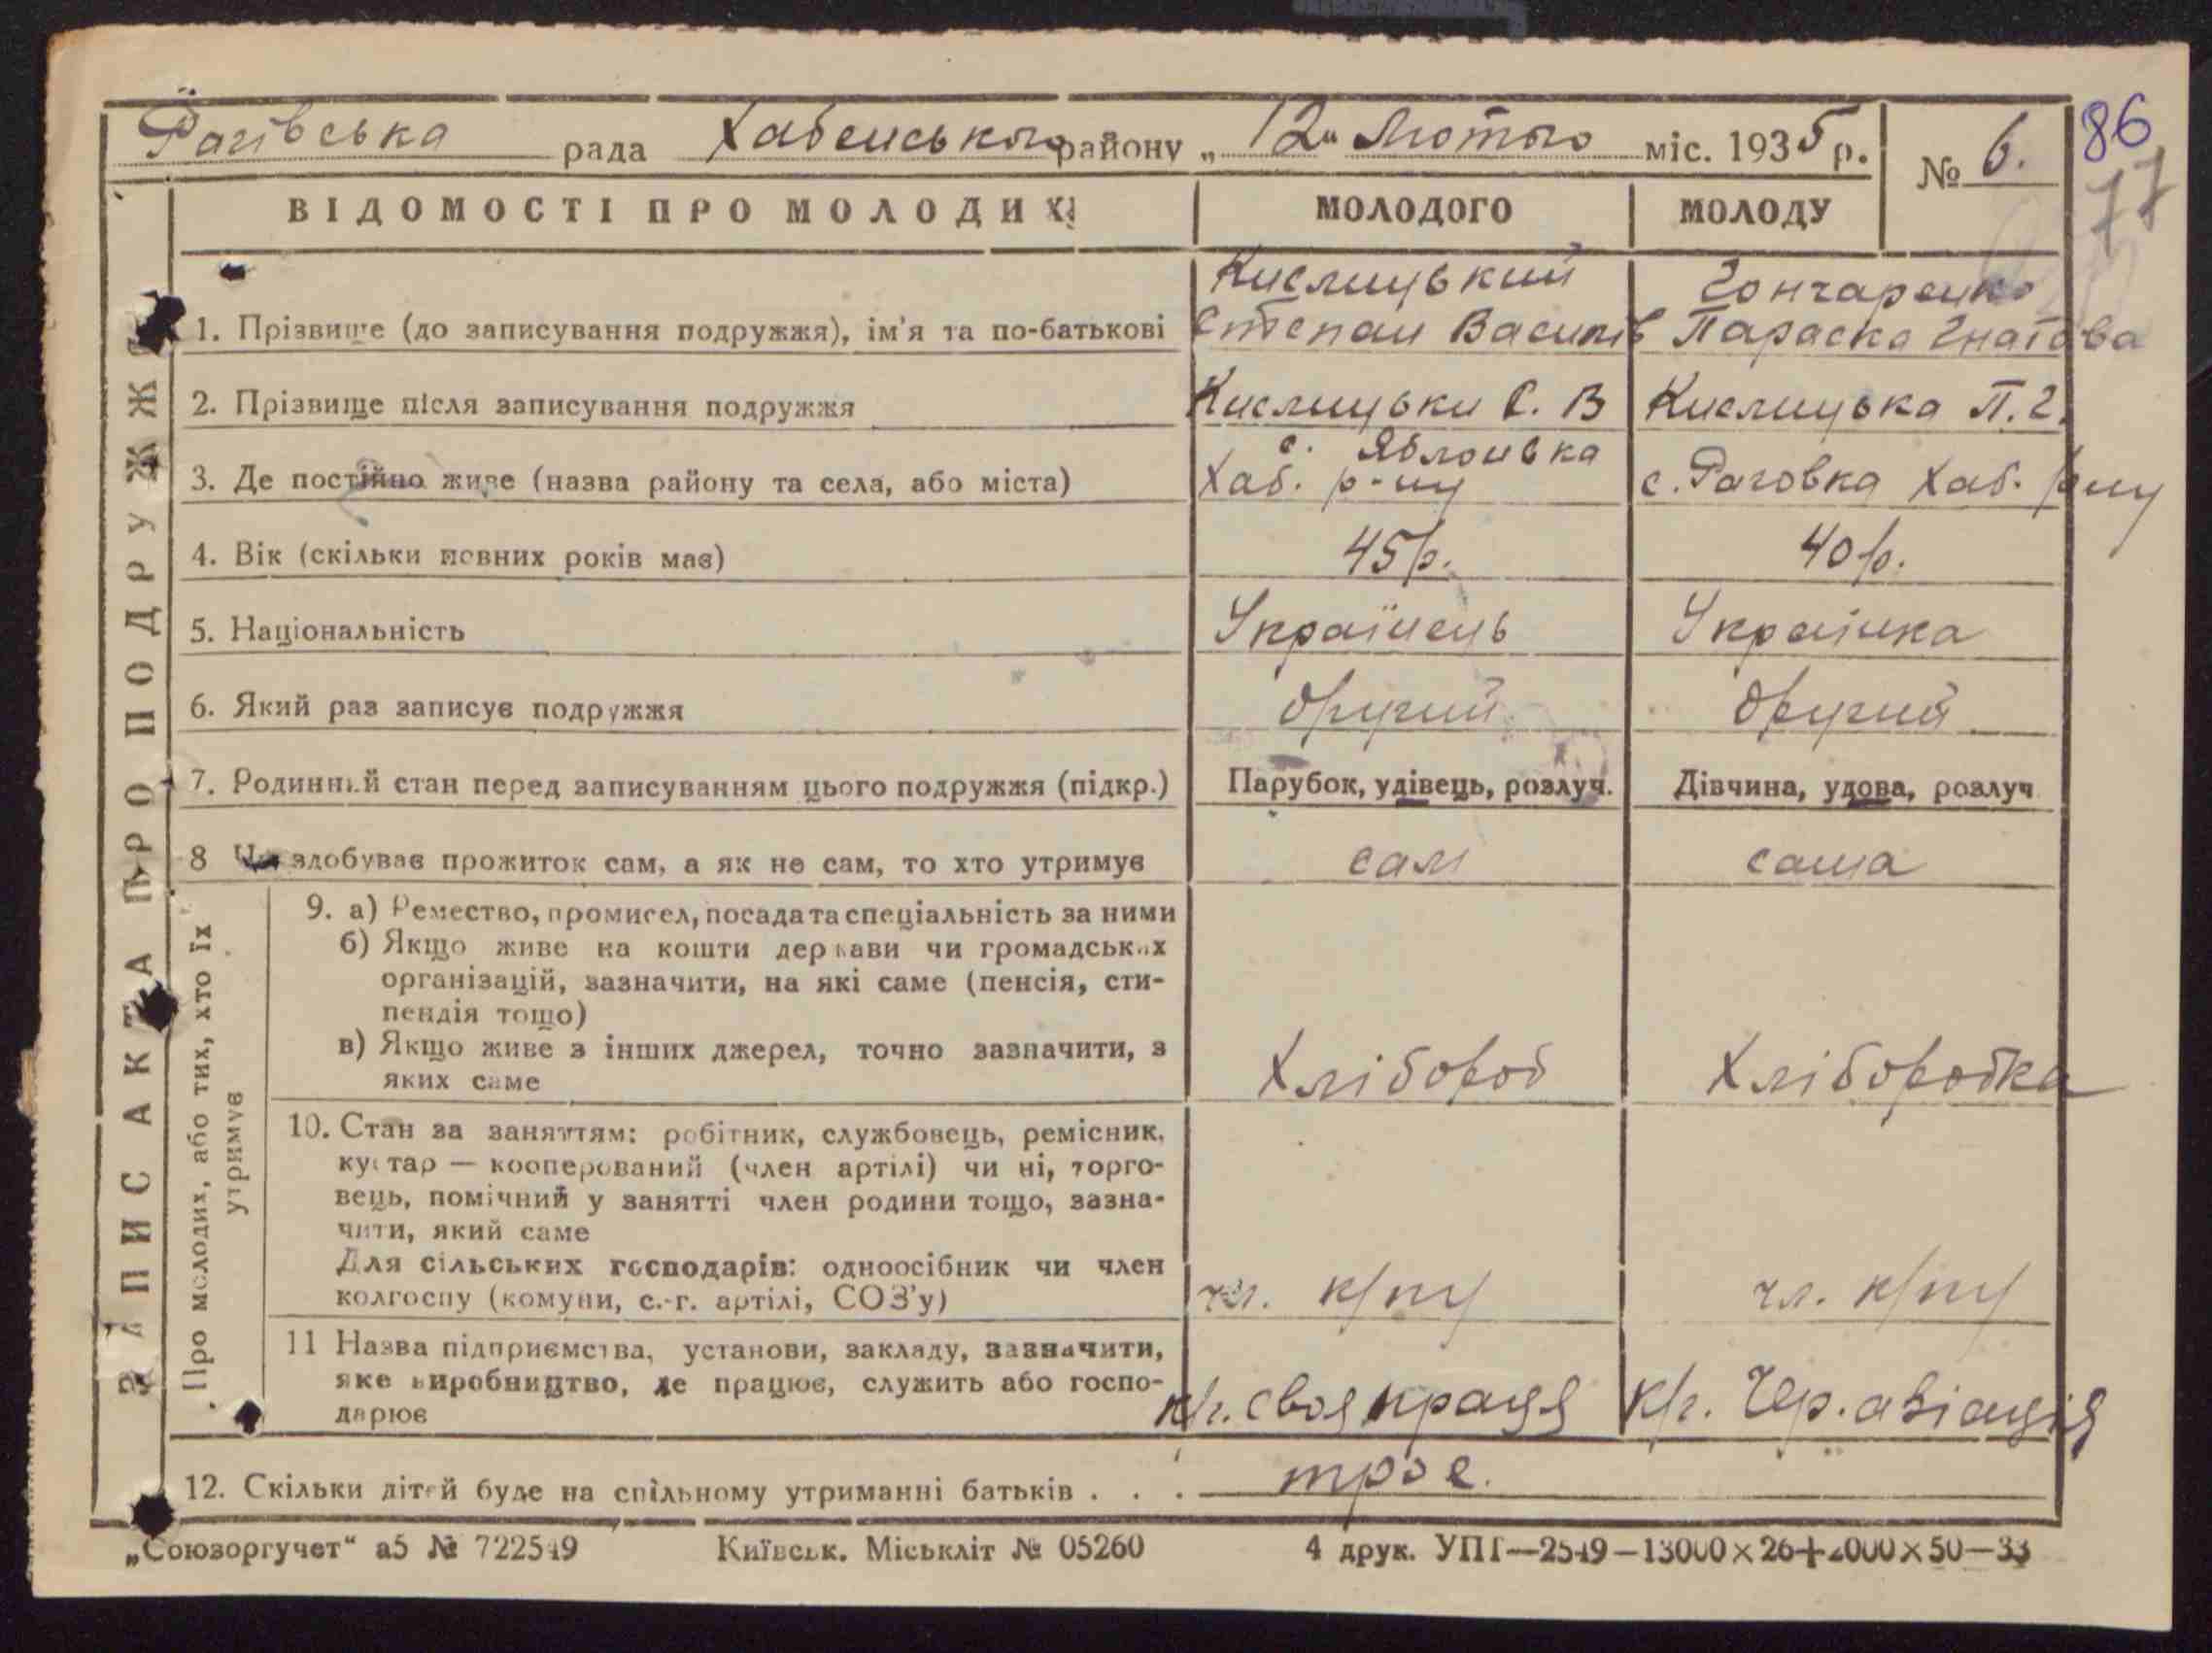 Рагівська рада Хабенського району „12" Лютого міс. 1935 р. № 6.
86
77
ЗАПИСКА ПРО ПОДРУЖЖЯ
ВІДОМОСТІ ПРО МОЛОДИХ МОЛОДОГО МОЛОДУ
Кислицький Гончаренко
1. Прізвище (до записування подружжя), ім'я та по-батькові Степан Василів Параска Гнатова
2. Прізвище після записування подружжя Кислицьки С. В Кислицька П. Г.
с. Яблонвка
3. Де постійно живе (назва району та села, або міста) Хаб. р-ну с. Раговка Хаб. р-ну
4. Вік (скільки повних років має) 45 р. 40 р.
5. Національність Українець Українка
6. Який раз записує подружжя другий другий
7. Родинний стан перед записуванням цього подружжя (підкр.) Парубок, удівець, розлуч. Дівчина, удова, розлуч
8 Чи здобуває прожиток сам, а як не сам, то хто утримує сам сама
Про молодих, або тих, хто їх
утримує
9. а) Ремество, промисел, посада та спеціальність за ними
б) Якщо живе на кошти держави чи громадських
організацій, зазначити, на які саме (пенсія, сти-
пендія тощо)
в) Якщо живе з інших джерел, точно зазначити, з
яких саме Хлібороб Хліборобка
10. Стан за заняттям: робітник, службовець, ремісник,
кустар — кооперований (член артілі) чи ні, торго-
вець, помічний у занятті член родини тощо, зазна-
чити, який саме
Для сільських господарів: одноосібник чи член
колгоспу (комуни, с.-г. артілі, СОЗ'у) чл. к/пу чл. к/пу
11 Назва підприємства, установи, закладу, зазначити,
яке виробництво, де працює, служить або госпо-
дарює к/г. своя праця к/г. Чер. авіація
12. Скільки дітей буде на спільному утриманні батьків . . . троє.
„Союзоргучет“ а5 № 722549 Київськ. Міськліт № 05260 4 друк. УПГ—2549—13000×26+2000×50—33